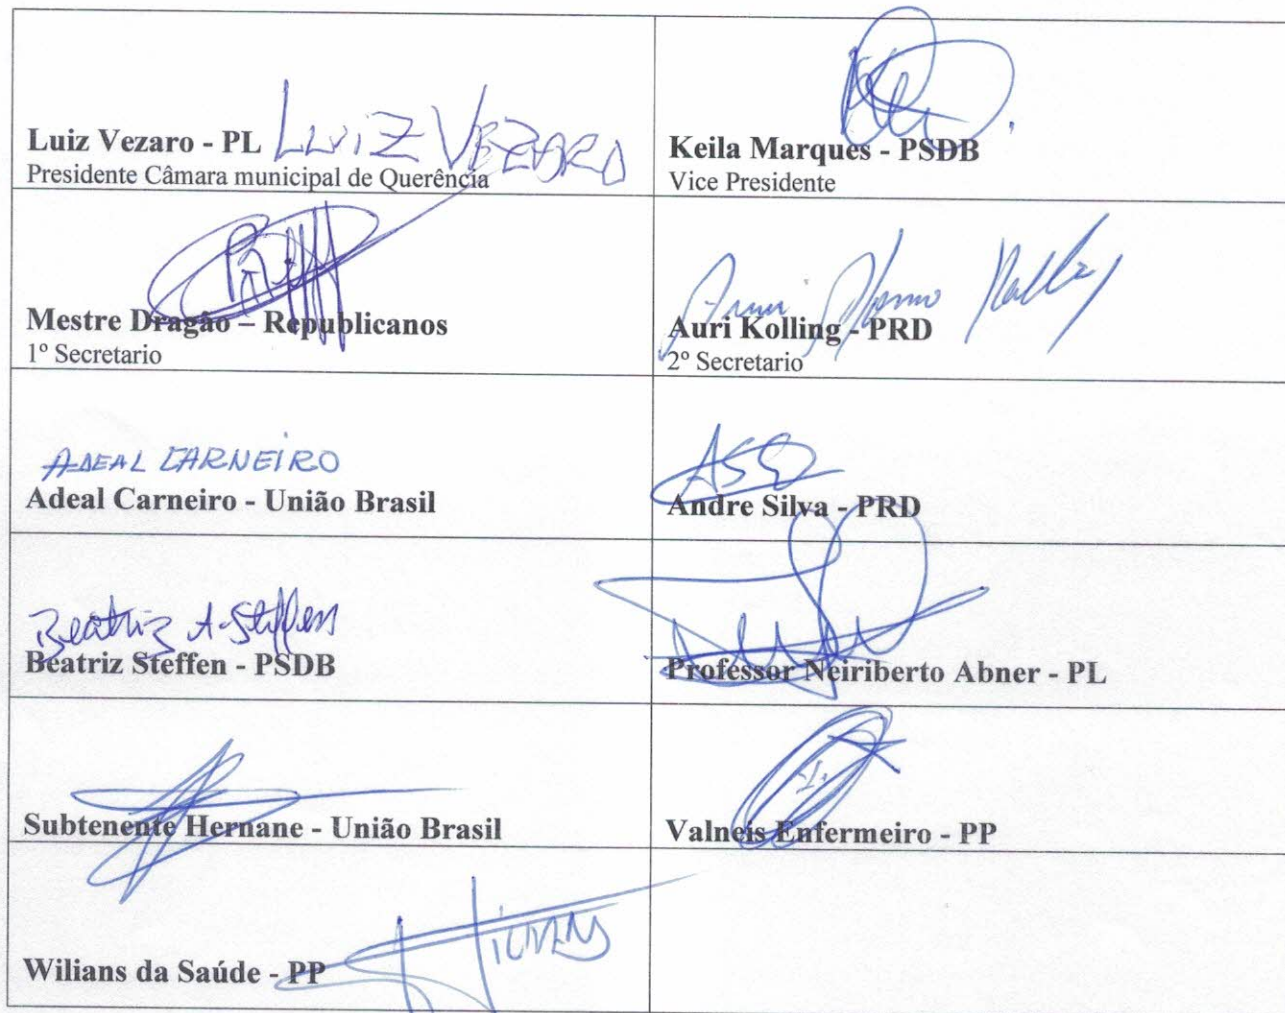 Luiz Vezaro - PL LUIZ VEZARO
Presidente Câmara municipal de Querência
Keila Marques - PSDB
Vice Presidente
Mestre Dragão – Republicanos
1º Secretario
Auri Kolling - PRD
2º Secretario
ADEAL CARNEIRO
Adeal Carneiro - União Brasil
Andre Silva - PRD
Beatriz A. Steffen
Beatriz Steffen - PSDB
Professor Neiriberto Abner - PL
Subtenente Hernane - União Brasil
Valneis Enfermeiro - PP
Wilians da Saúde - PP